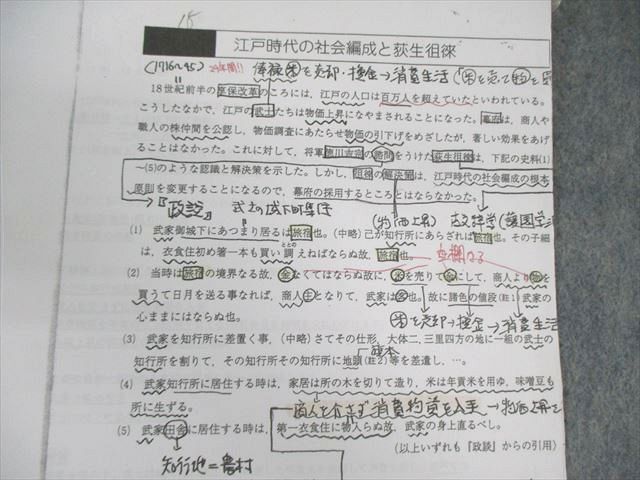 15
江戸時代の社会編成と荻生徂徠
(1716~45) 29年間!! 俸禄(米)を売却・換金→消費生活(米を売って物を
18世紀前半の享保改革のころには、江戸の人口は百万人を超えていたといわれている。
こうしたなかで、江戸の武士たちは物価上昇になやまされることになった。幕府は、商人や
職人の株仲間を公認し、物価調査にあたらせ物価の引下げをめざしたが、著しい効果をあげ
ることはなかった。これに対して、将軍徳川吉宗の諮問をうけた荻生徂徠は、下記の史料(1)
~(5)のような認識と解決策を示した。しかし、徂徠の解決策は、江戸時代の社会編成の根本
原則を変更することになるので、幕府の採用するところとはならなかった。
『政談』 武士の城下町集住 (物価上昇) 古文辞学(蘐園学
(1) 武家御城下にあつまり居るは旅宿也。(中略)己が知行所にあらざれば旅宿也。その子細
は、衣食住初め箸一本も買い調えねばならぬ故、旅宿也。
ととの
(2) 当時は旅宿の境界なる故、金なくてはならぬ故に、米を売りて金にして、商人より物を
買うて日月を送る事なれば、商人主となりて、武家は客也。故に諸色の値段(註1)武家の
心ままにはならぬ也。
(米)を売却→換金→消費生活
(3) 武家を知行所に差置く事、(中略)さてその仕形、大体二、三里四方の地に一組の武士の
知行所を割りて、その知行所その知行所に地頭(註2)等を差遣し、…。
旗本
(4) 武家知行所に居住する時は、家居は所の木を切りて造り、米は年貢米を用ゆ、味噌豆も
所に生ずる。
商人を介さず消費物資を入手→物価上昇
(5) 武家田舎に居住する時は、第一衣食住に物入らぬ故、武家の身上直るべし。
(以上いずれも『政談』からの引用)
知行地=農村